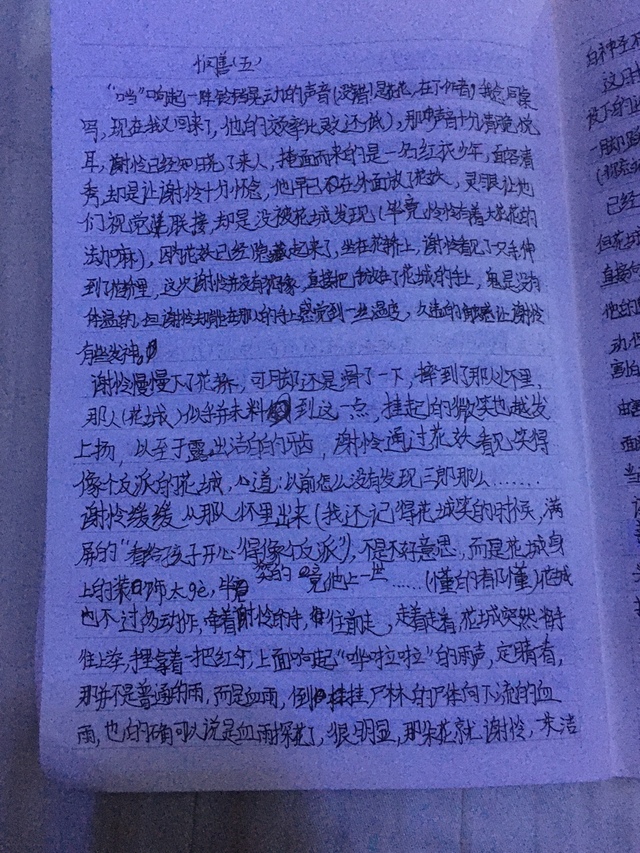 恨善(五)
“叮”响起一阵铃铛晃动的声音(没错!是花花,在下作者,我忘同桌
写,现在我又回来了,他的效率比较还低),那叮声音十分清脆悦
耳,谢怜已经知晓了来人,掩面而来的是一名红衣少年,面容清
秀,却是让谢怜十分怀念,他早已在外面放了花妖,灵眼让他
们视觉联接,却是没被花城发现(毕竟怜怜有着大花花的
法力嘛),因为花妖已经隐藏起来了,坐在花轿上,谢怜看见了一只手伸
到了轿里,这次谢怜并没有犹豫,直接把手放在了花城的手上,鬼是没有
体温的,但谢怜却能在那人的手上感觉到一丝温度,久违的触感让谢怜
有些发神。
谢怜慢慢下了花轿,可脚还是滑了一下,摔到了那人怀里,
那人(花城)似乎并未料到这一点,挂起的微笑也越发
上扬,以至于露出洁白的牙齿,谢怜通过花妖看见笑得
像个反派的花城,心道:以前怎么没有发现三郎那么……
谢怜缓缓从那人怀里出来(我还记得花城笑的时候,满
屏的“看给孩子开心笑的得像个反派”),不是不好意思,而是花城身
上的装饰太咯,毕竟他上一世……(懂的都懂)花城
也不过多动作,牵着谢怜的手,往前走,走着走着,花城突然将手
往上举,拿着一把红伞,上面响起“哗啦啦”的雨声,定睛看,
那并不是普通的雨,而是血雨,倒挂尸林的尸体向下流的血
雨,也的确可以说是血雨探花了,很明显,那朵花就谢怜,来洁